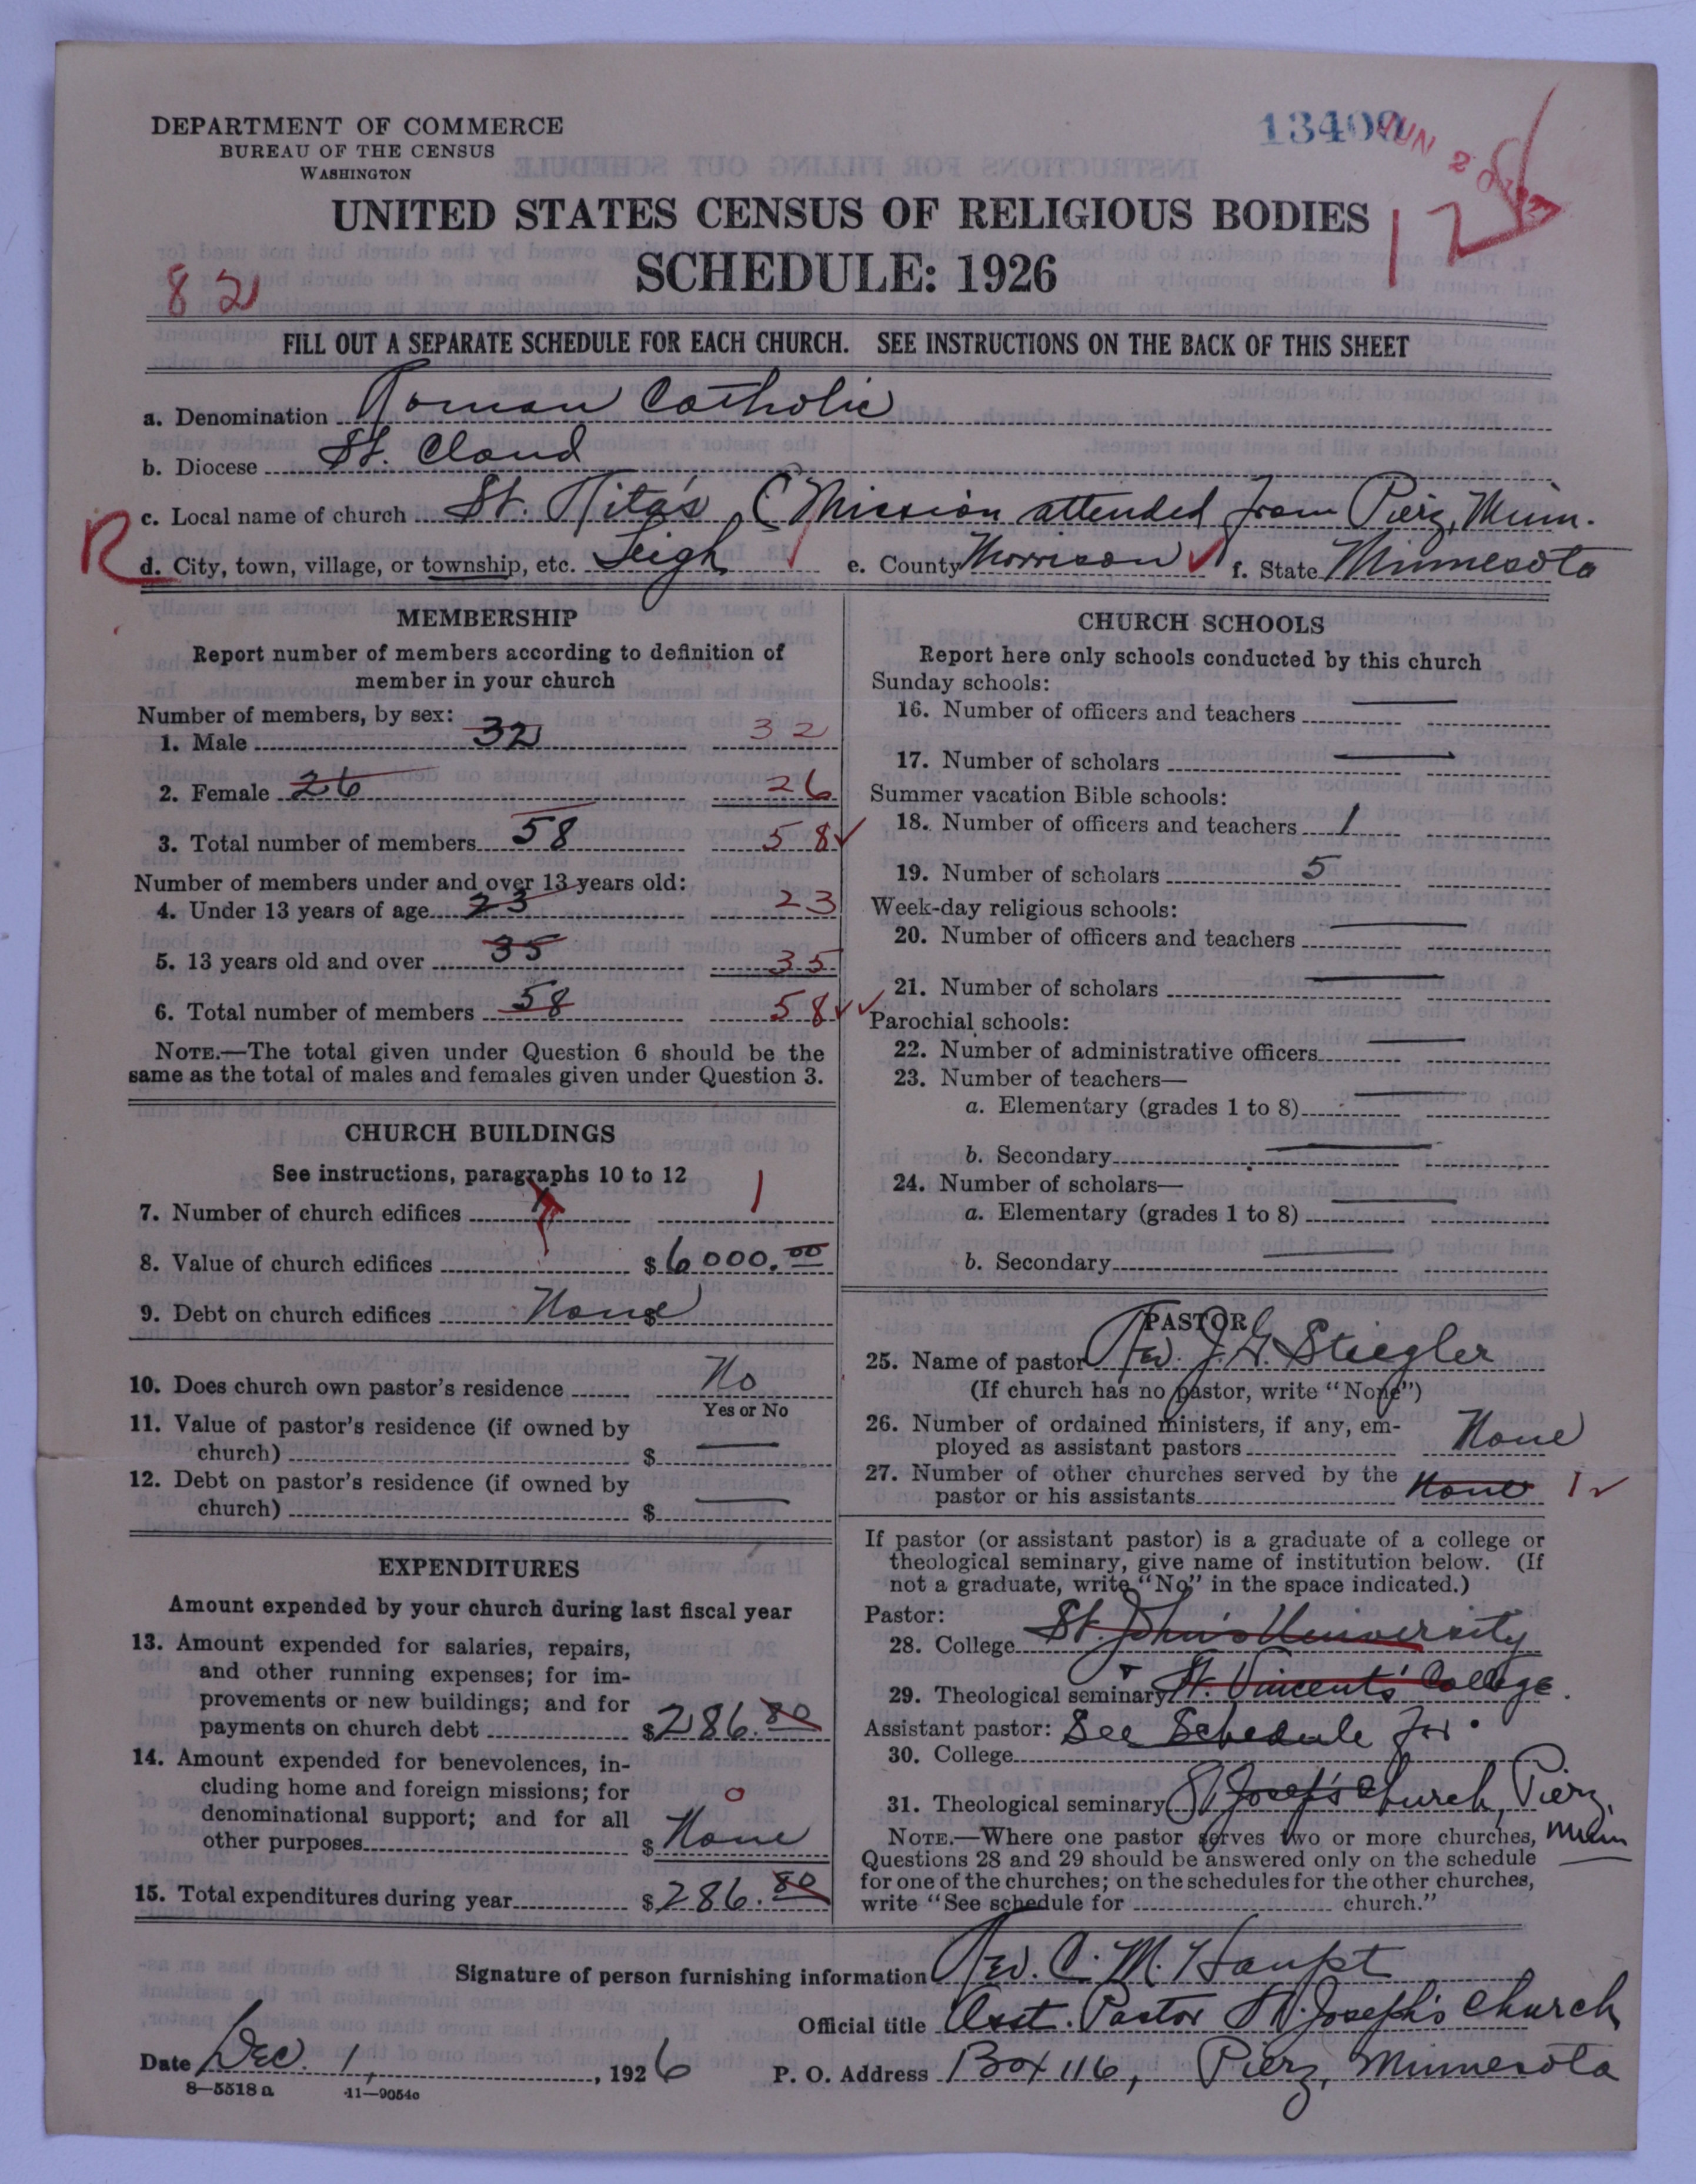 DEPARTMENT OF COMMERCE
BUREAU OF THE CENSUS
WASHINGTON
13400
JUN 20 1927
UNITED STATES CENSUS OF RELIGIOUS BODIES
SCHEDULE: 1926
82
12
FILL OUT A SEPARATE SCHEDULE FOR EACH CHURCH. SEE INSTRUCTIONS ON THE BACK OF THIS SHEET
a. Denomination Roman Catholic
b. Diocese St. Cloud
c. Local name of church St. Rita's (Mission attended from Pierz, Minn.
R
d. City, town, village, or township, etc. Leigh e. County Morrison f. State Minnesota
MEMBERSHIP
Report number of members according to definition of
member in your church
Number of members, by sex:
1. Male 32 32
2. Female 26 26
3. Total number of members 58 58
Number of members under and over 13 years old:
4. Under 13 years of age 23 23
5. 13 years old and over 35 35
6. Total number of members 58 58
NOTE.—The total given under Question 6 should be the
same as the total of males and females given under Question 3.
CHURCH BUILDINGS
See instructions, paragraphs 10 to 12
7. Number of church edifices 1
8. Value of church edifices $ 6000.00
9. Debt on church edifices $ None
10. Does church own pastor's residence No
Yes or No
11. Value of pastor's residence (if owned by
church) $
12. Debt on pastor's residence (if owned by
church) $
EXPENDITURES
Amount expended by your church during last fiscal year
13. Amount expended for salaries, repairs,
and other running expenses; for im-
provements or new buildings; and for
payments on church debt $ 286.80
14. Amount expended for benevolences, in-
cluding home and foreign missions; for
denominational support; and for all 0
other purposes $ None
15. Total expenditures during year $ 286.80
CHURCH SCHOOLS
Report here only schools conducted by this church
Sunday schools:
16. Number of officers and teachers
17. Number of scholars
Summer vacation Bible schools:
18. Number of officers and teachers 1
19. Number of scholars 5
Week-day religious schools:
20. Number of officers and teachers
21. Number of scholars
Parochial schools:
22. Number of administrative officers
23. Number of teachers—
a. Elementary (grades 1 to 8)
b. Secondary
24. Number of scholars—
a. Elementary (grades 1 to 8)
b. Secondary
PASTOR
25. Name of pastor Rev. J. G. Stiegler
(If church has no pastor, write "None")
26. Number of ordained ministers, if any, em-
ployed as assistant pastors None
27. Number of other churches served by the
pastor or his assistants None 1
If pastor (or assistant pastor) is a graduate of a college or
theological seminary, give name of institution below. (If
not a graduate, write "No" in the space indicated.)
Pastor:
28. College St. John's University
29. Theological seminary St. Vincent's College.
Assistant pastor: See Schedule for
30. College
31. Theological seminary St Joseph's Church, Pierz,
Minn
NOTE.—Where one pastor serves two or more churches,
Questions 28 and 29 should be answered only on the schedule
for one of the churches; on the schedules for the other churches,
write "See schedule for church."
Signature of person furnishing information Rev. C. M. Haupt
Official title Asst. Pastor St. Joseph's Church
Date Dec. 1, 1926 P. O. Address Box 116, Pierz, Minnesota
8—5518 a 11—9054c